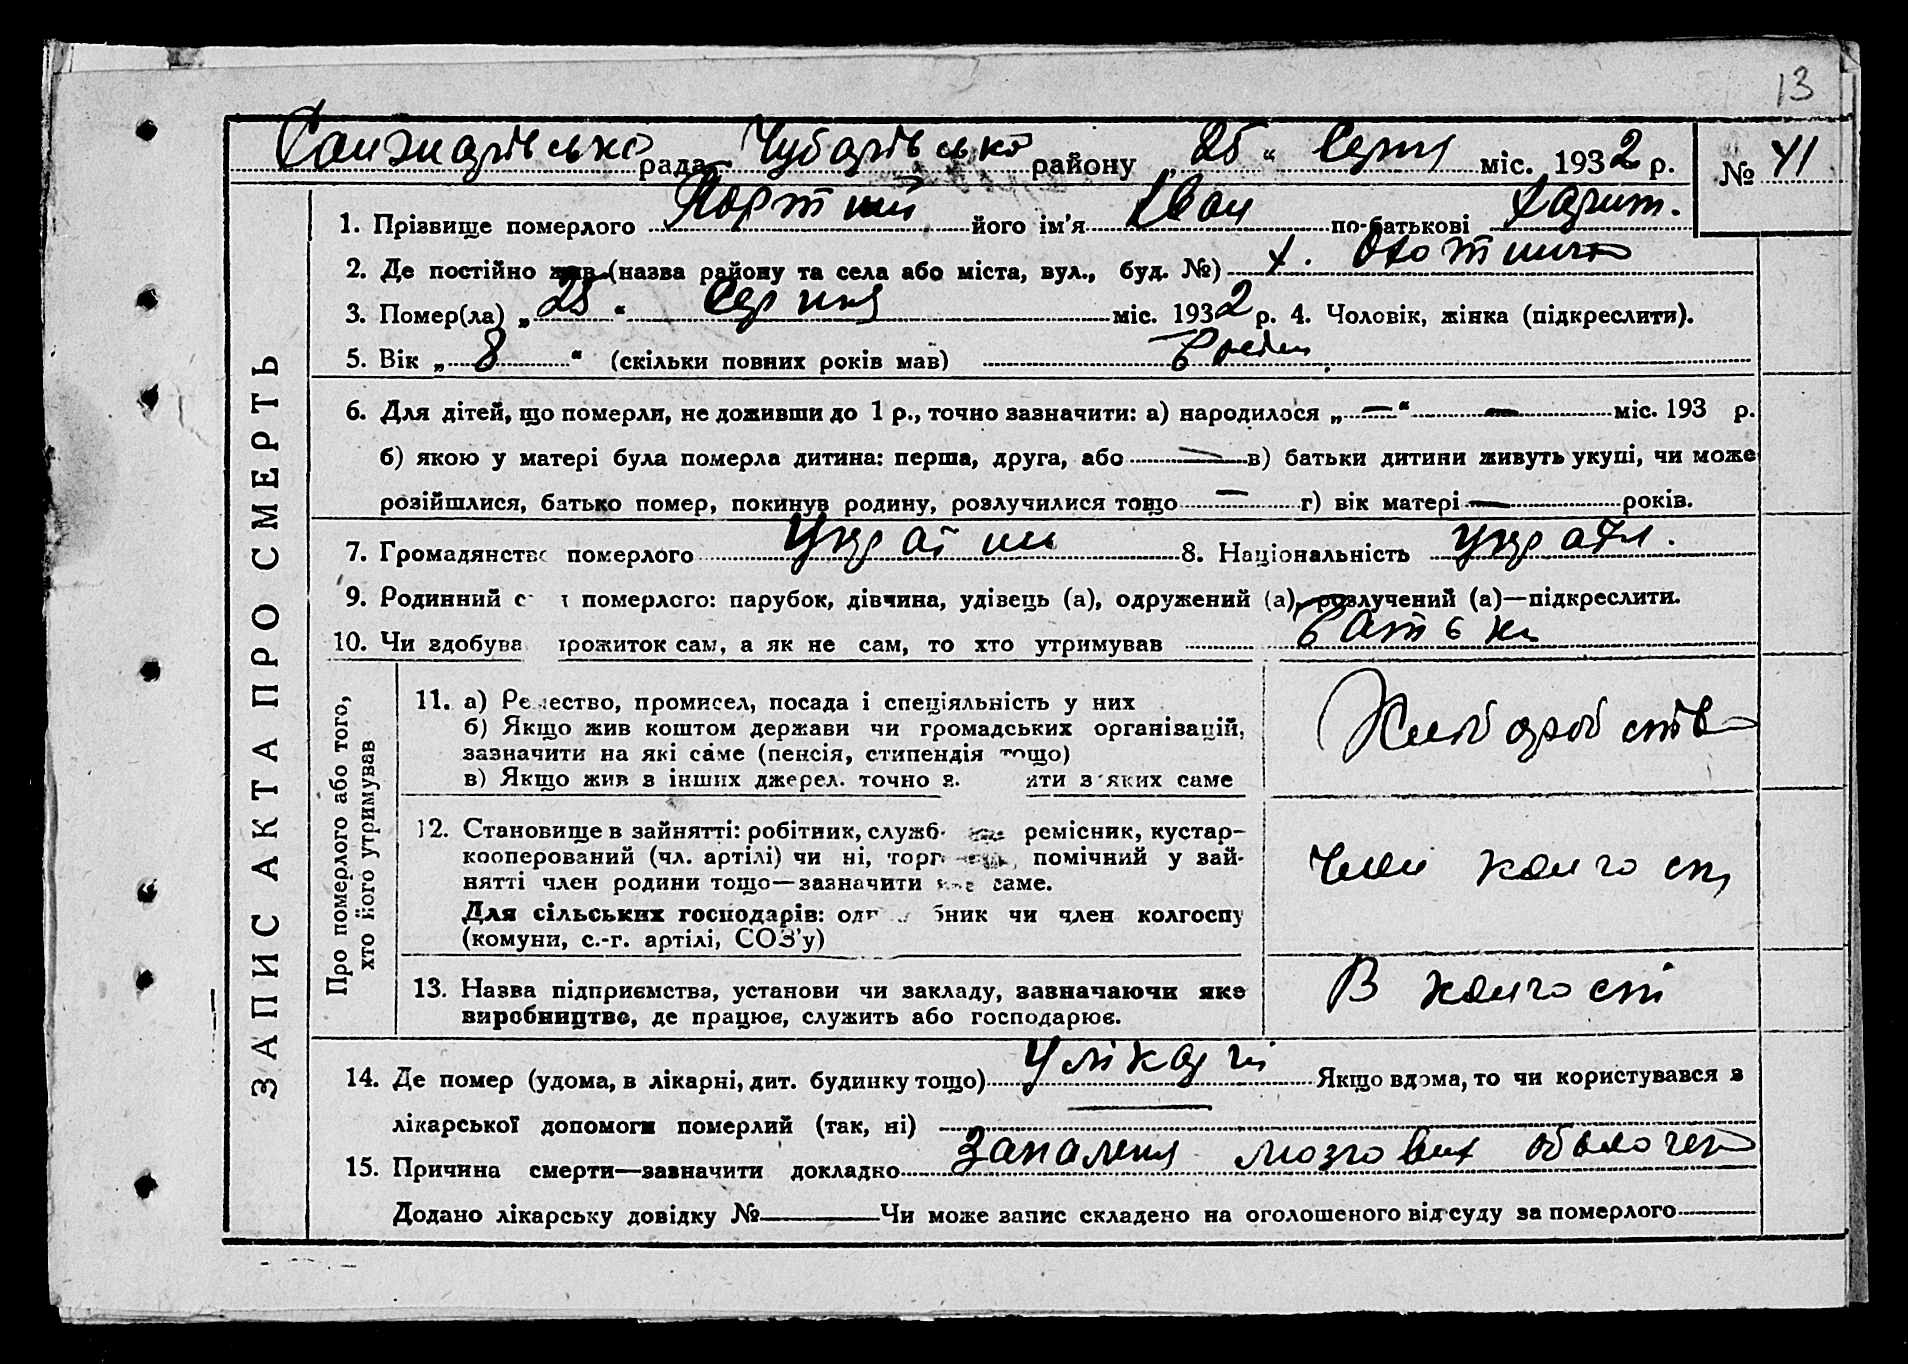 13
Санжарівсько рада Чубарівсько району „25“ Серпня міс. 1932 р. № 41
ЗАПИС АКТА ПРО СМЕРТЬ
1. Прізвище померлого його ім'я Іван по-батькові Харит.
2. Де постійно жив (назва району та села або міста, вул., буд. №) х.
3. Помер(ла) „25“ Серпня міс. 1932 р. 4. Чоловік, жінка (підкреслити).
5. Вік „8“ (скільки повних років мав)
6. Для дітей, що померли, не доживши до 1 р., точно зазначити: а) народилося „—“ — міс. 193 р.
б) якою у матері була померла дитина: перша, друга, або — в) батьки дитини живуть укупі, чи може
розійшлися, батько помер, покинув родину, розлучилися тощо — г) вік матері — років.
7. Громадянство померлого Україн 8. Національність
9. Родинний с т померлого: парубок, дівчина, удівець (а), одружений (а), розлучений (а)—підкреслити.
10. Чи здобува прожиток сам, а як не сам, то хто утримував Батьки
Про померлого або того, хто його утримував
11. а) Ремество, промисел, посада і спеціяльність у них
б) Якщо жив коштом держави чи громадських організацій,
зазначити на які саме (пенсія, стипендія тощо)
в) Якщо жив з інших джерел. точно з. ити з яких саме
Хліборобство
12. Становище в зайнятті: робітник, служб ремісник, кустар-
кооперований (чл. артілі) чи ні, торг помічний у зай-
нятті член родини тощо—зазначити яке саме.
Для сільських господарів: од бник чи член колгоспу
(комуни, с.-г. артілі, СОЗ'у)
Член колгоспу
13. Назва підприємства, установи чи закладу, зазначаючи яке
виробництво, де працює, служить або господарює.
В колгоспі
14. Де помер (удома, в лікарні, дит. будинку тощо) У лікарні Якщо вдома, то чи користувався з
лікарської допомоги померлий (так, ні) —
15. Причина смерти—зазначити докладно Запаленя мозгових оболочек
Додано лікарську довідку № — Чи може запис складено на оголошеного від суду за померлого